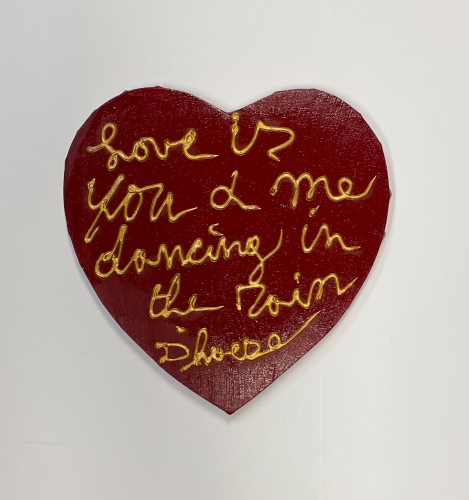 Love is
you & me
dancing in
the rain